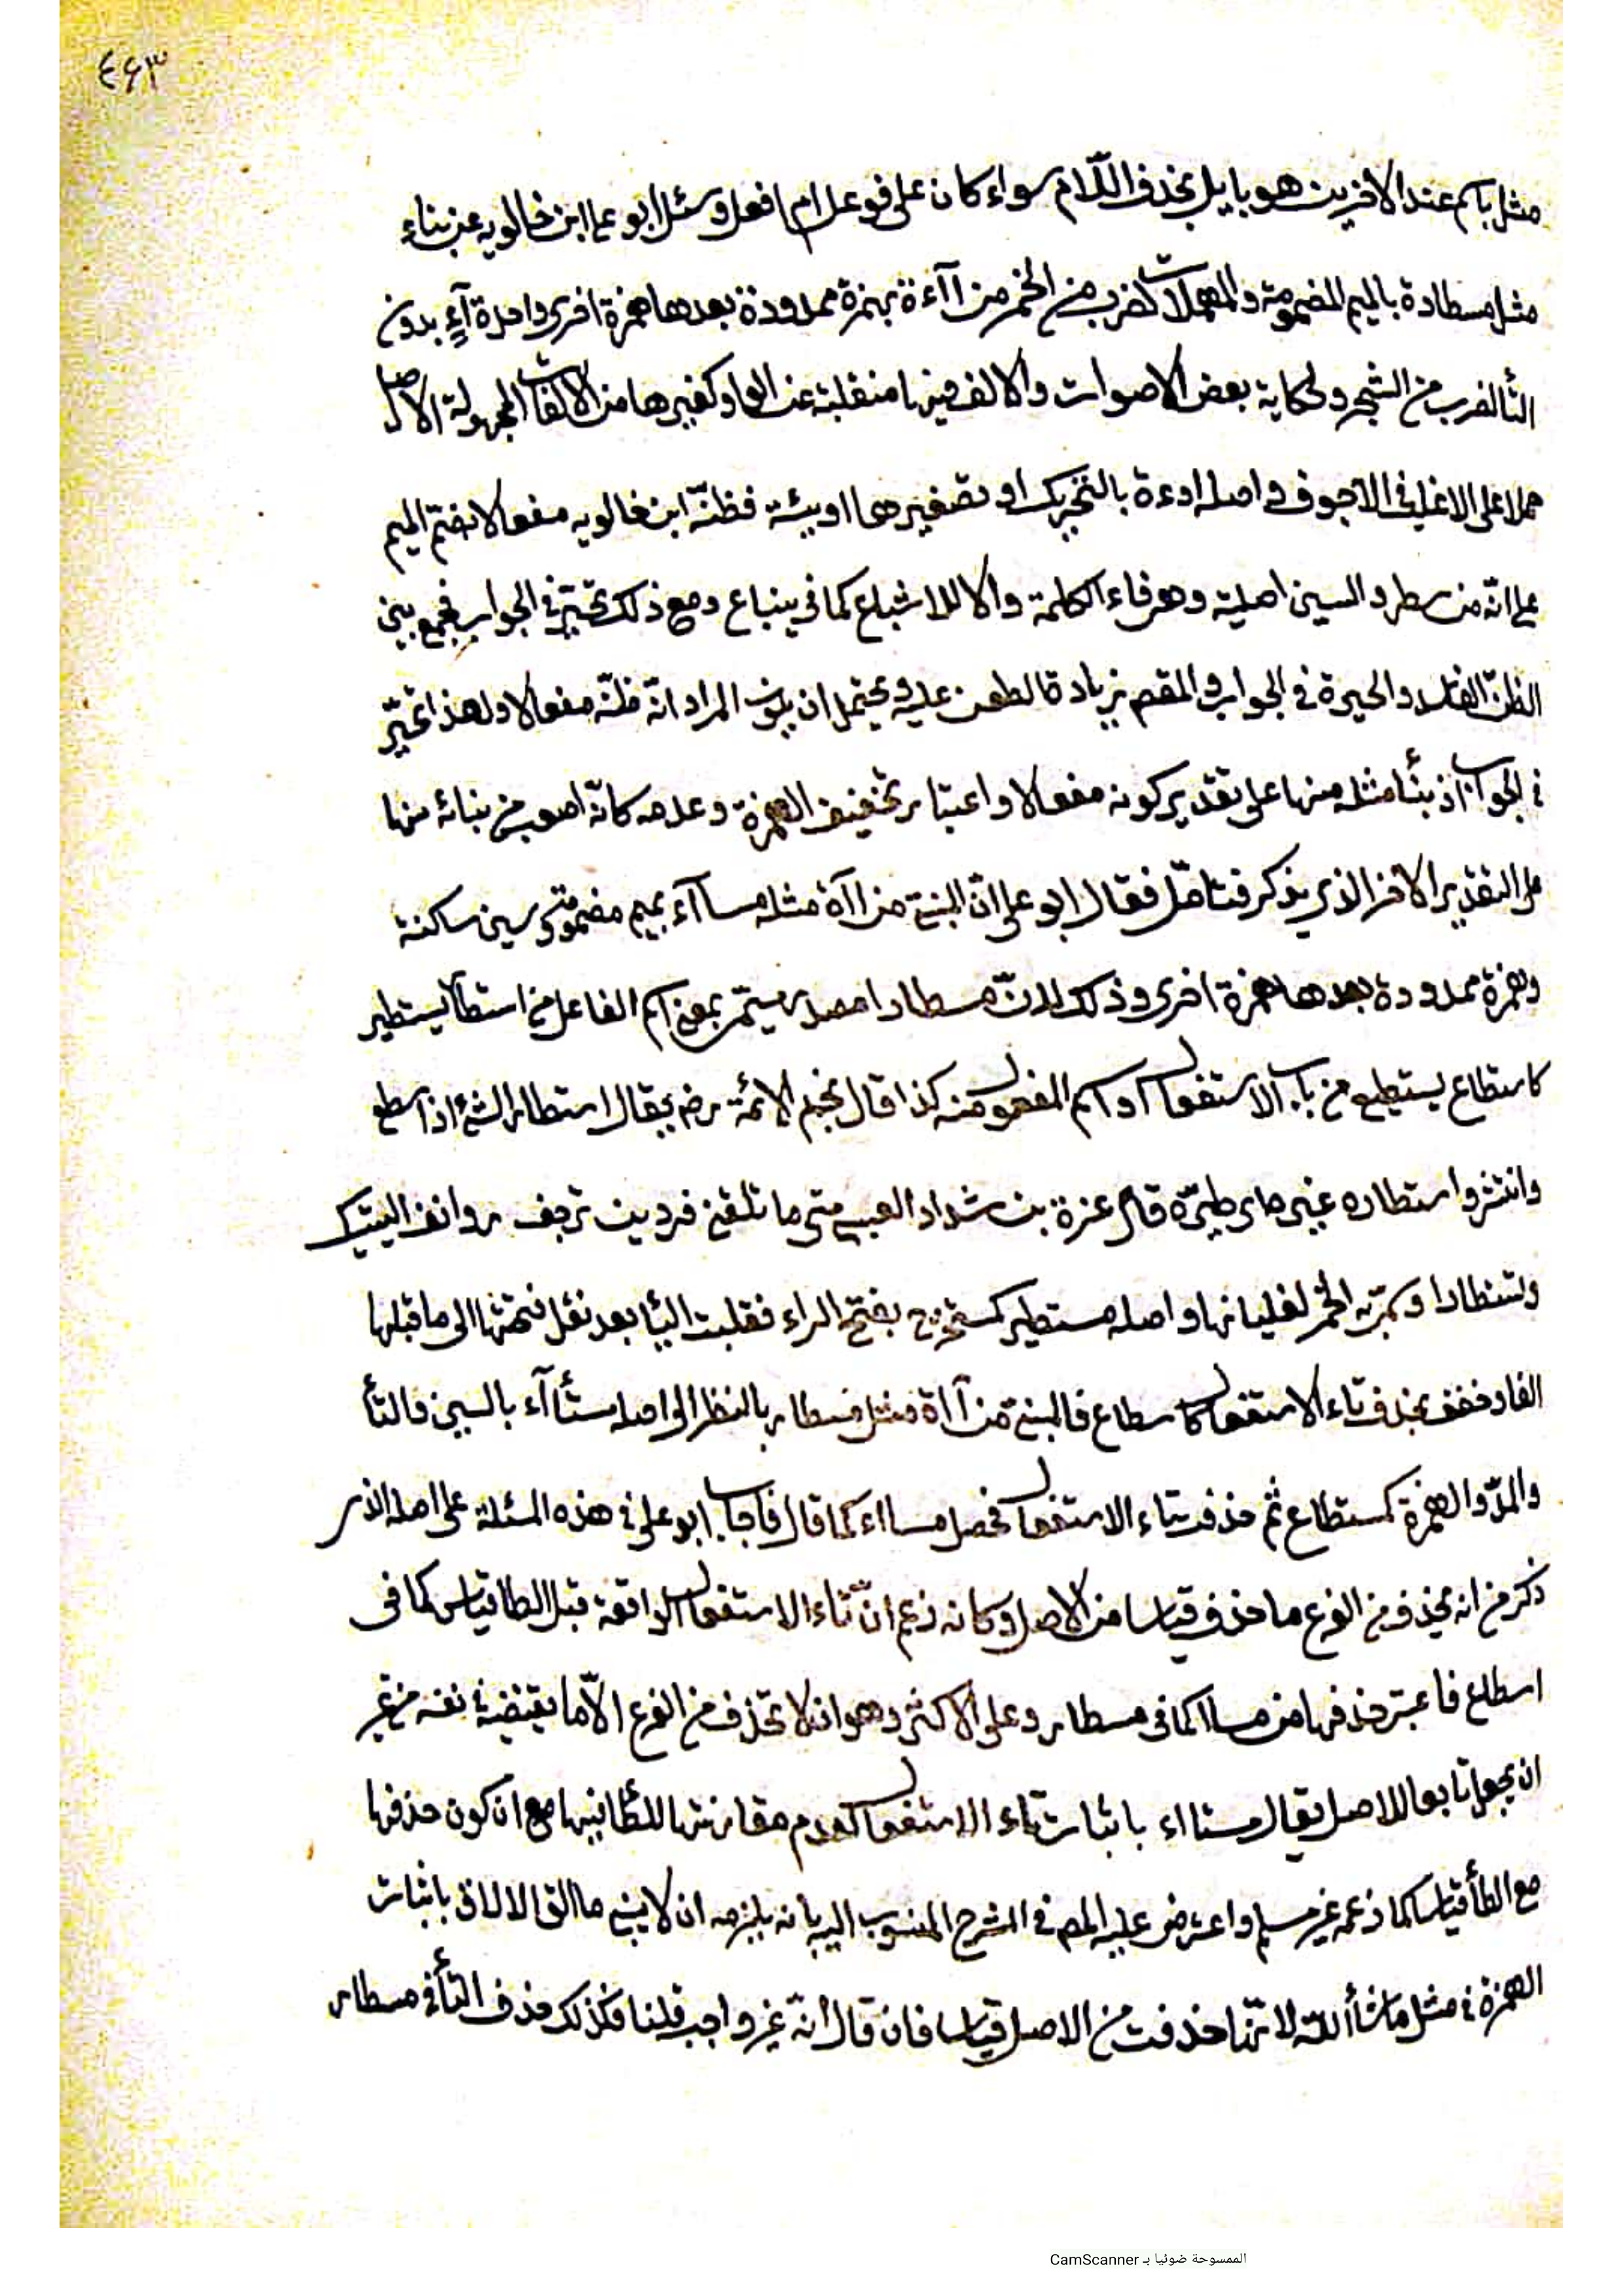 ٤٦٣
مثل باسم عند الاخرين هو بايل بحذف اللّام سواء كان على فوعل ام افعل وسئل ابو على ابن خالويه عن بناء
مثل مسطارة بالميم المضمومة والمهملات لضرب من الخمر من اآءة بهمزة ممدودة بعدها همزة اخرى واحدة آءٍ بدون
التأ لضرب من الشجر ولحكاية بعض الاصوات والالف فيها منقلبة عن الواو كغيرها من الالفات المجهولة الاصل
حملا على الاغلب فى الاجوف واصله اوءة بالتحريك او تصغيرها اويئة فظنّه ابن خالويه مفعالا بضم الميم
على انّه من سطر والسين اصلية وهى فاء الكلمة والالف للاشباع كما فى ينباع ومع ذلك تحيّر فى الجواب فجمع بين
الظنّ الفاسد والحيرة فى الجواب والمقصم زيادة الطعن عليه ويحتمل ان يكون المراد انّه ظنّه مفعالا ولهذا تحيّر
فى الجواب اذ بنأ مثله منها على تقدير كونه مفعالا واعتبار تخفيف الهمزة وعدمه كانّه اصوب من بنائه منها
على التقدير الاخر الذى يذكر فتامّل فقال ابو على انّ المبنى من اآة مثله مسآاء بميم مضمومة وسين ساكنة
وهمزة ممدودة بعدها همزة اخرى وذلك لانّ مسطارا مصدر ميمّى بمعنى اسم الفاعل من استطار يستطير
كاستطاع يستطيع من باب الاستفعال او اسم المفعول منه كذا قال نجم الائمة رضى يقال استطار الشئ اذا سطع
وانتشر واستطاره غيره اى طيّره قال عنترة بن شداد العبسى متى ما تلقنى فردين ترجف روانف اليتيك
وتستطارا وسمّى به الخمر لغليانها واصله مستطير كمستخرج بفتح الراء فقلبت اليأ بعد نقل فتحتها الى ما قبلها
الفا وخفف بحذف تاء الاستفعال كاسطاع فالمبنى من آاة مثل مسطار بالنظر الى اصله مستأاء بالسين والتأ
والمدّ والهمزة كمستطاع ثم حذفت تاء الاستفعال فحصل مسااء كما قال فاجاب ابو على فى هذه المسئلة على اصله الذى
ذكر من انه يحذف من الفرع ما حذف قياسا من الاصل وكانه زعم انّ تاء الاستفعال الواقعة قبل الطا قياس كما فى
اسطاع فاعتبر حذفها من مساا كما فى مسطار وعلى الاكثر وهو ان لا تحذف من الفرع الّا ما يقتضيه فى نفسه من غير
ان يجعل تابعا للاصل يقال مستااء باثبات تاء الاستفعال لعدم مقارنتها للطأ فيها مع ان كون حذفها
مع الطأ قياسا كما زعمه غير مسلم واعترض عليه المص فى الشرح المنسوب اليه بانه يلزمه ان لا يبنى ما القى الالاق باثبات
الهمزة فى مثل ما شأ اللّه لانّها حذفت من الاصل قياسا فان قال انّه غير واجب قلنا فكذلك حذف التأ فى مسطار
الممسوحة ضوئيا بـ CamScanner